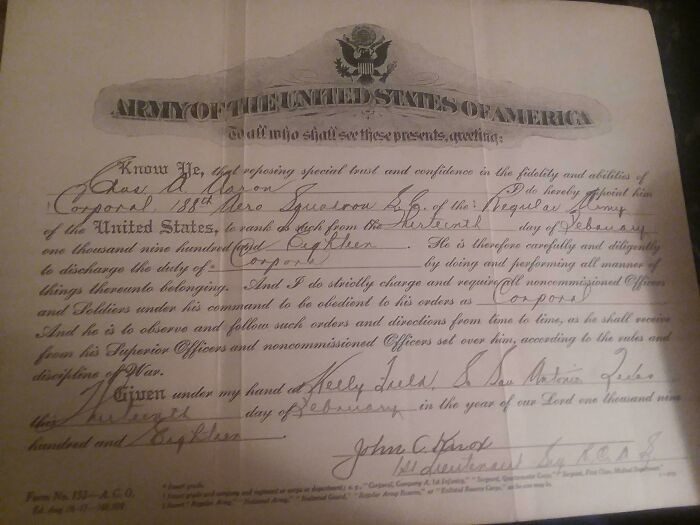 ARMY OF THE UNITED STATES OF AMERICA
To all who shall see these presents, greeting:
Know Ye, that reposing special trust and confidence in the fidelity and abilities of
Chas A. Aaron I do hereby appoint him
Corporal, 188th Aero Squadron S.C. of the * Regular Army
of the United States, to rank as such from the thirteenth day of February
one thousand nine hundred and Eighteen. He is therefore carefully and diligently
to discharge the duty of * Corporal by doing and performing all manner of
things thereunto belonging. And I do strictly charge and require all noncommissioned Officers
and Soldiers under his command to be obedient to his orders as Corporal
And he is to observe and follow such orders and directions from time to time, as he shall receive
from his Superior Officers and noncommissioned Officers set over him, according to the rules and
discipline of War.
Given under my hand at Kelly Field, So San Antonio Texas
this thirteenth day of February in the year of our Lord one thousand nine
hundred and Eighteen.
John C. Knox
1st Lieutenant
Form No. 153—A.G.O.
Ed. Aug.
* Insert grade.